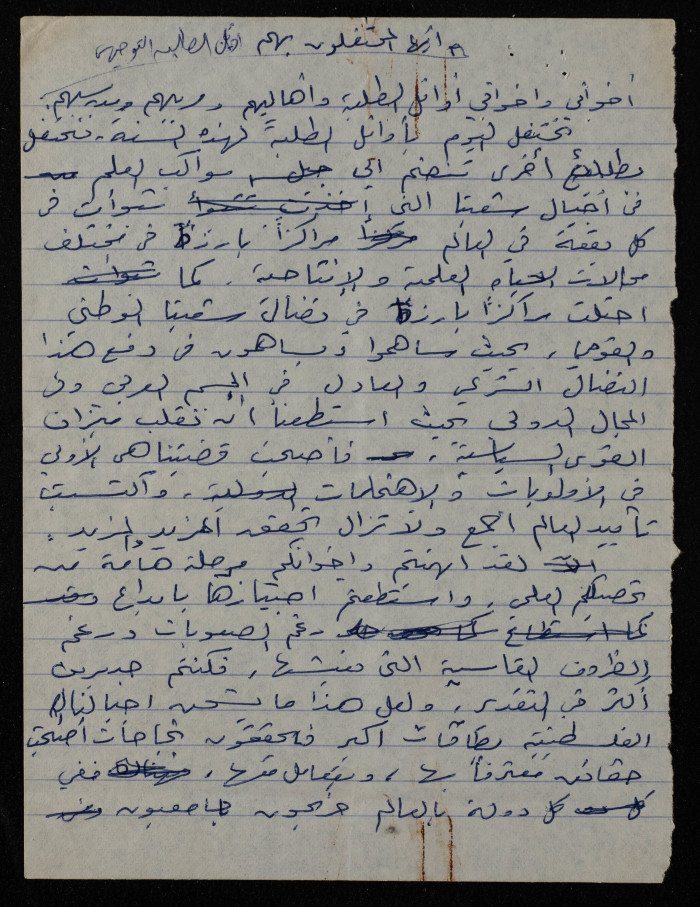 أيها المحتفلون بهم أوائل الطلبة التوجيهي
أخواني واخواتي أوائل الطلبة وأهاليهم ومربيهم ومدرسيهم.
نحتفل اليوم بأوائل الطلبة لهذه السنة، نحتفل
بطلائع أخرى تنضم الى مواكب العلم
في أجيال شعبنا التي تبوأت في
كل بقعة في العالم مراكزاً بارزة في مختلف
مجالات الحياة العلمية والإنتاجية. كما
احتلت مراكزاً بارزة في نضال شعبنا الوطني
والقومي، بحيث ساهموا ويساهمون في دفع هذا
النضال الشرعي والعادل في الجسم العربي وفي
المجال الدولي بحيث استطعنا أن نقلب ميزان
القوى السياسية، فأصبحت قضيتنا هي الأولى
في الأولويات والاهتمامات الدولية، واكتسبت
تأييد العالم أجمع ولا تزال تحقق المزيد المزيد.
لقد أنهيتم واخوانكم مرحلة هامة من
تحصيلكم العلمي، واستطعتم اجتيازها بابداع
كما استطاع كما رغم الصعوبات ورغم
الظروف القاسية التي نعيشها، فكنتم جديرين
أكثر في التقدير، ولعل هذا ما يشحن اجيالنا
الفلسطينية بطاقات اكبر فيحققون نجاحات أصبحت
حقائق معترفاً بها، ويتعامل معها، ففي
كل دولة بالعالم خريجون جامعيون